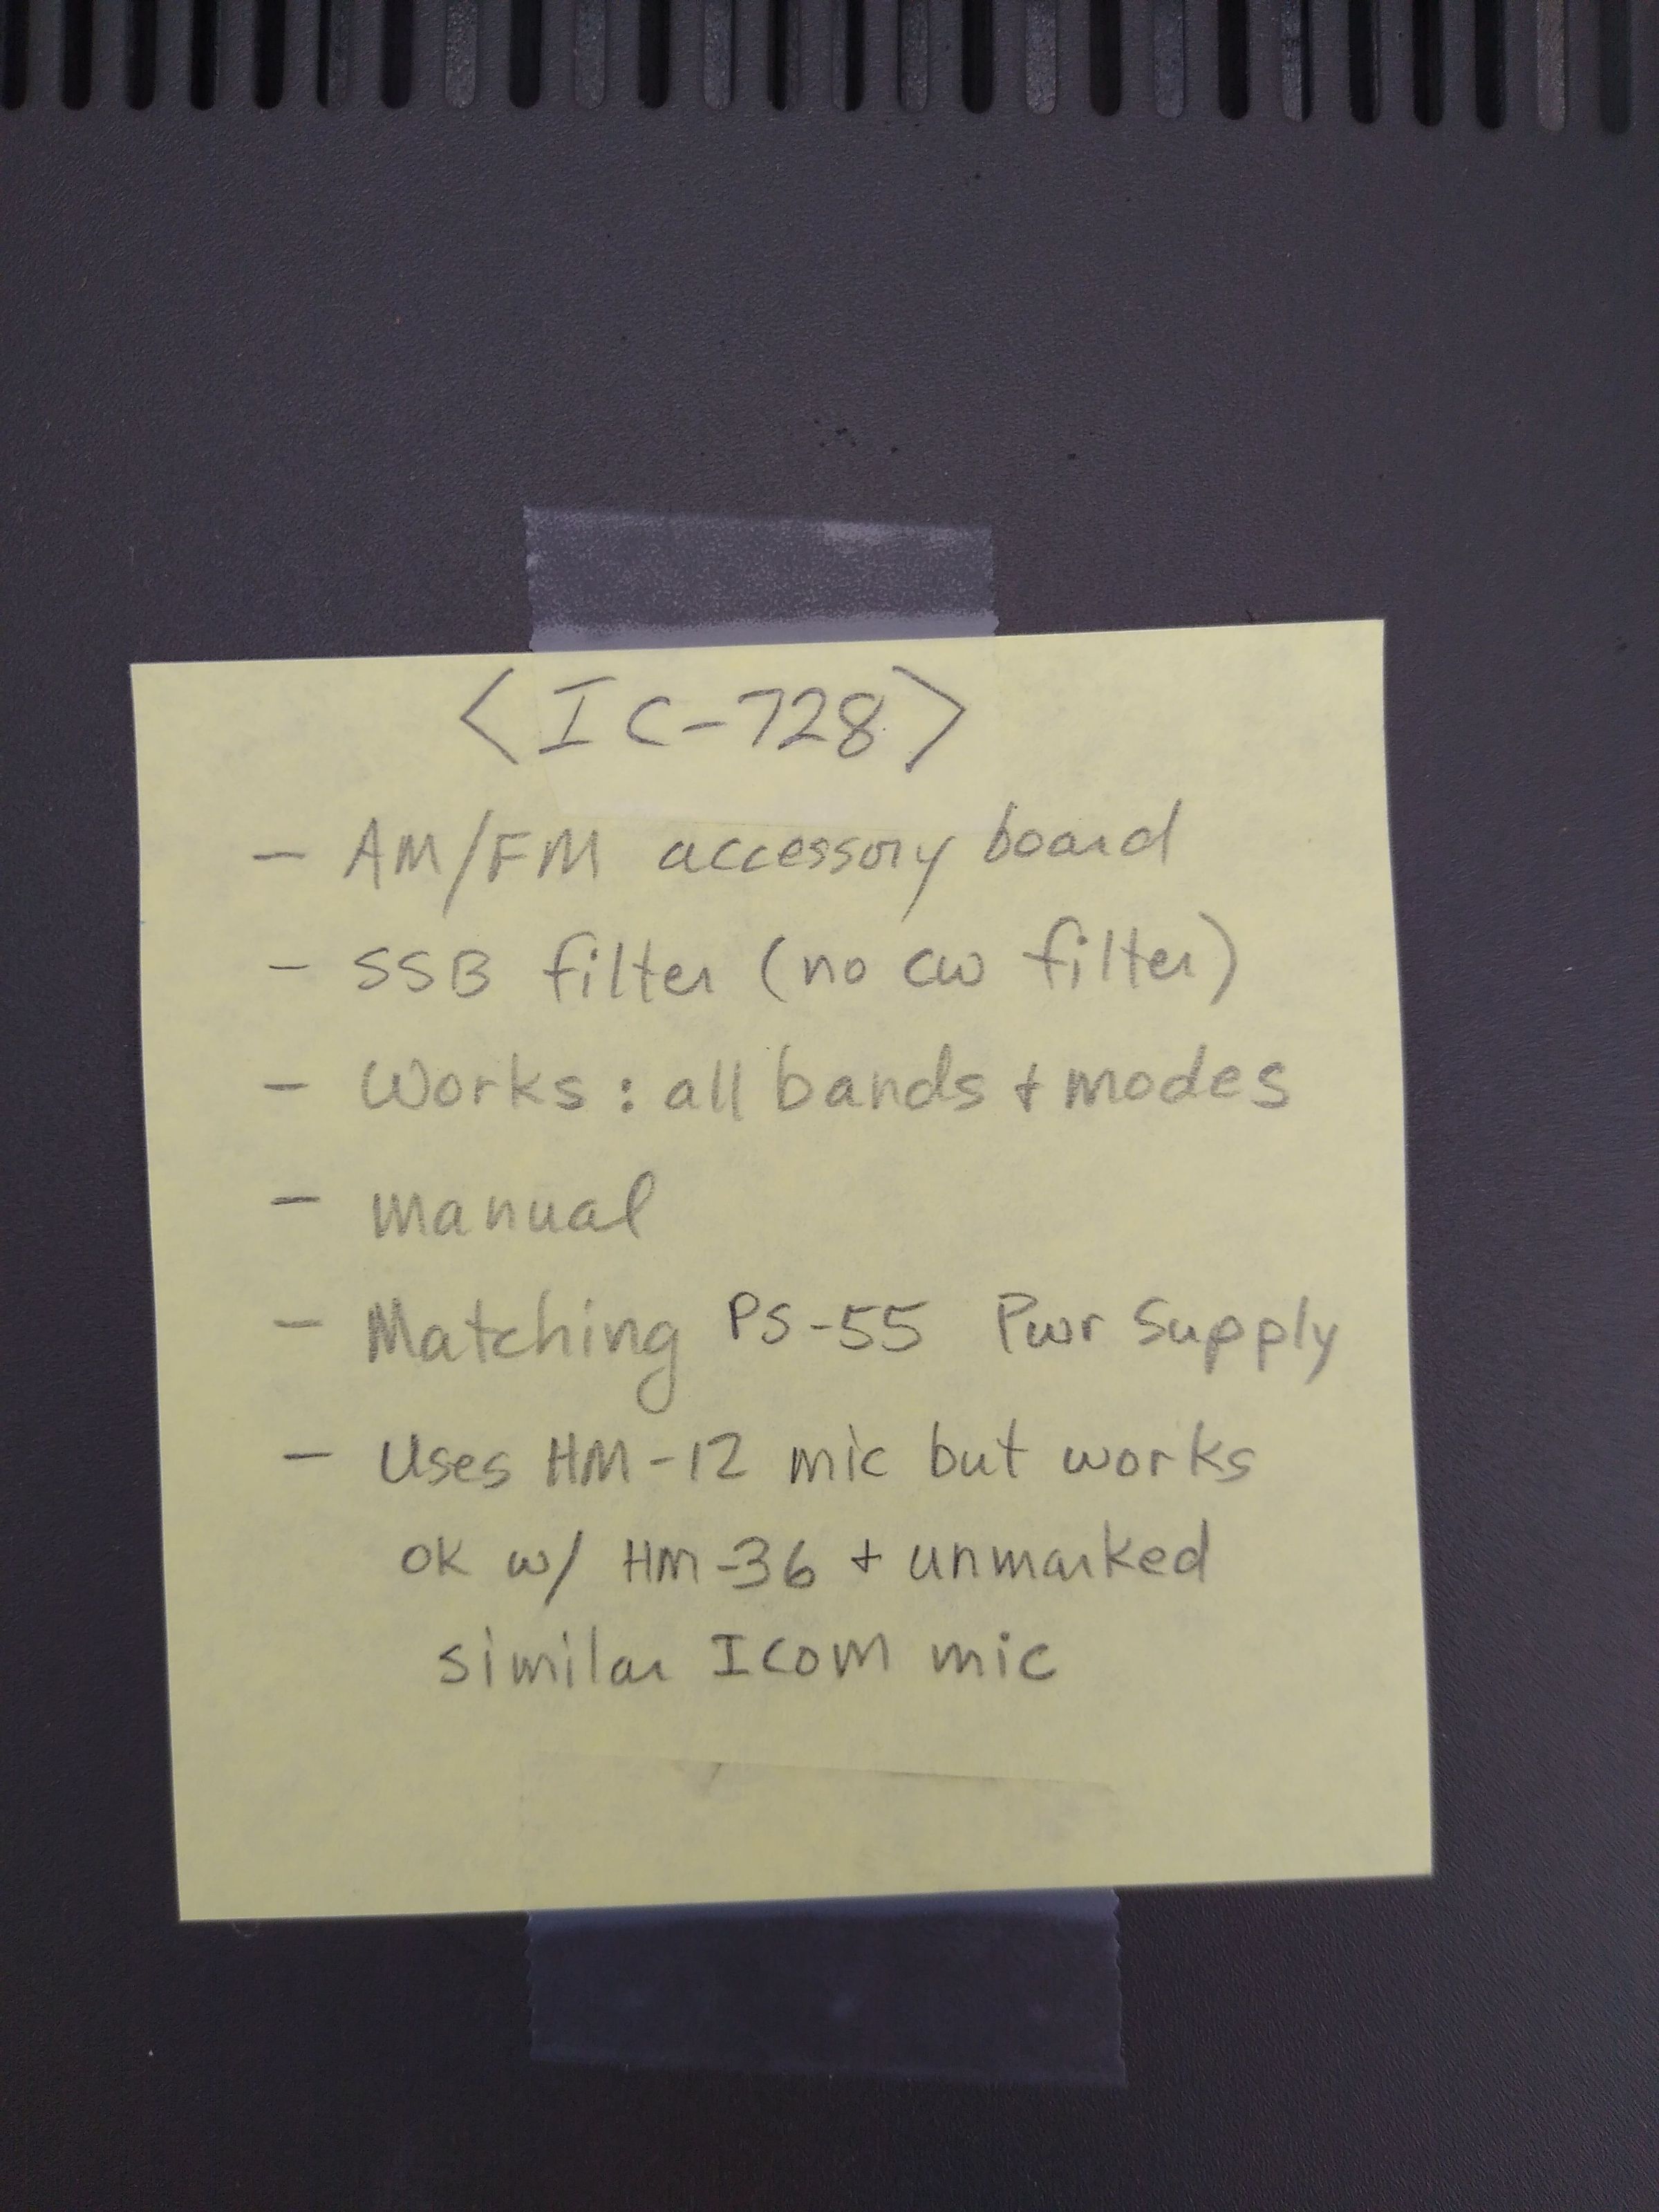 <IC-728>
- AM/FM accessory board
- SSB filter (no cw filter)
- Works: all bands + modes
- manual
- Matching PS-55 Pwr Supply
- Uses HM-12 mic but works
ok w/ HM-36 + unmarked
similar ICOM mic